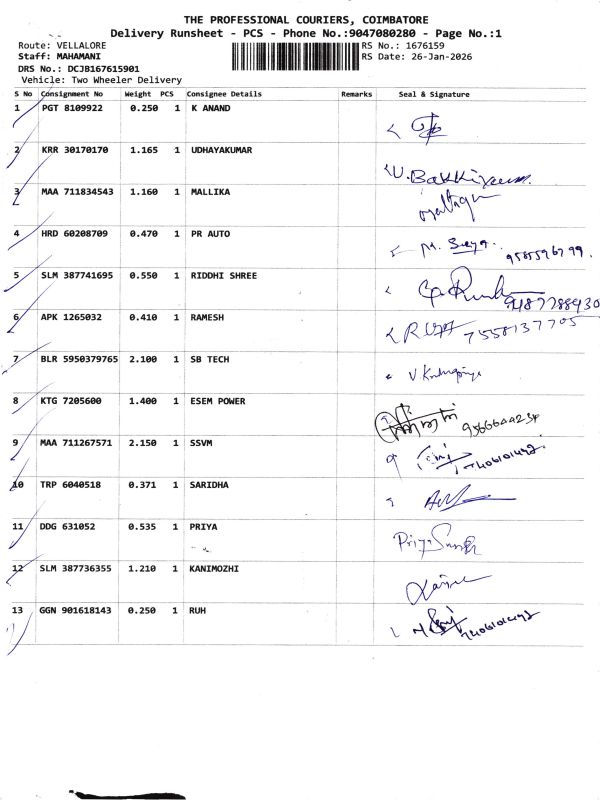 THE PROFESSIONAL COURIERS, COIMBATORE
Delivery Runsheet - PCS - Phone No.:9047080280 - Page No.:1
Route: VELLALORE RS No.: 1676159
Staff: MAHAMANI RS Date: 26-Jan-2026
DRS No.: DCJB167615901
Vehicle: Two Wheeler Delivery
S No Consignment No Weight PCS Consignee Details Remarks Seal & Signature
1 PGT 8109922 0.250 1 K ANAND
2 KRR 30170170 1.165 1 UDHAYAKUMAR
3 MAA 711834543 1.160 1 MALLIKA
4 HRD 60208709 0.470 1 PR AUTO M. Surya.
5 SLM 387741695 0.550 1 RIDDHI SHREE
6 APK 1265032 0.410 1 RAMESH 7558137705
7 BLR 5950379765 2.100 1 SB TECH
8 KTG 7205600 1.400 1 ESEM POWER
9 MAA 711267571 2.150 1 SSVM
10 TRP 6040518 0.371 1 SARIDHA
11 DDG 631052 0.535 1 PRIYA Priya
12 SLM 387736355 1.210 1 KANIMOZHI
13 GGN 901618143 0.250 1 RUH